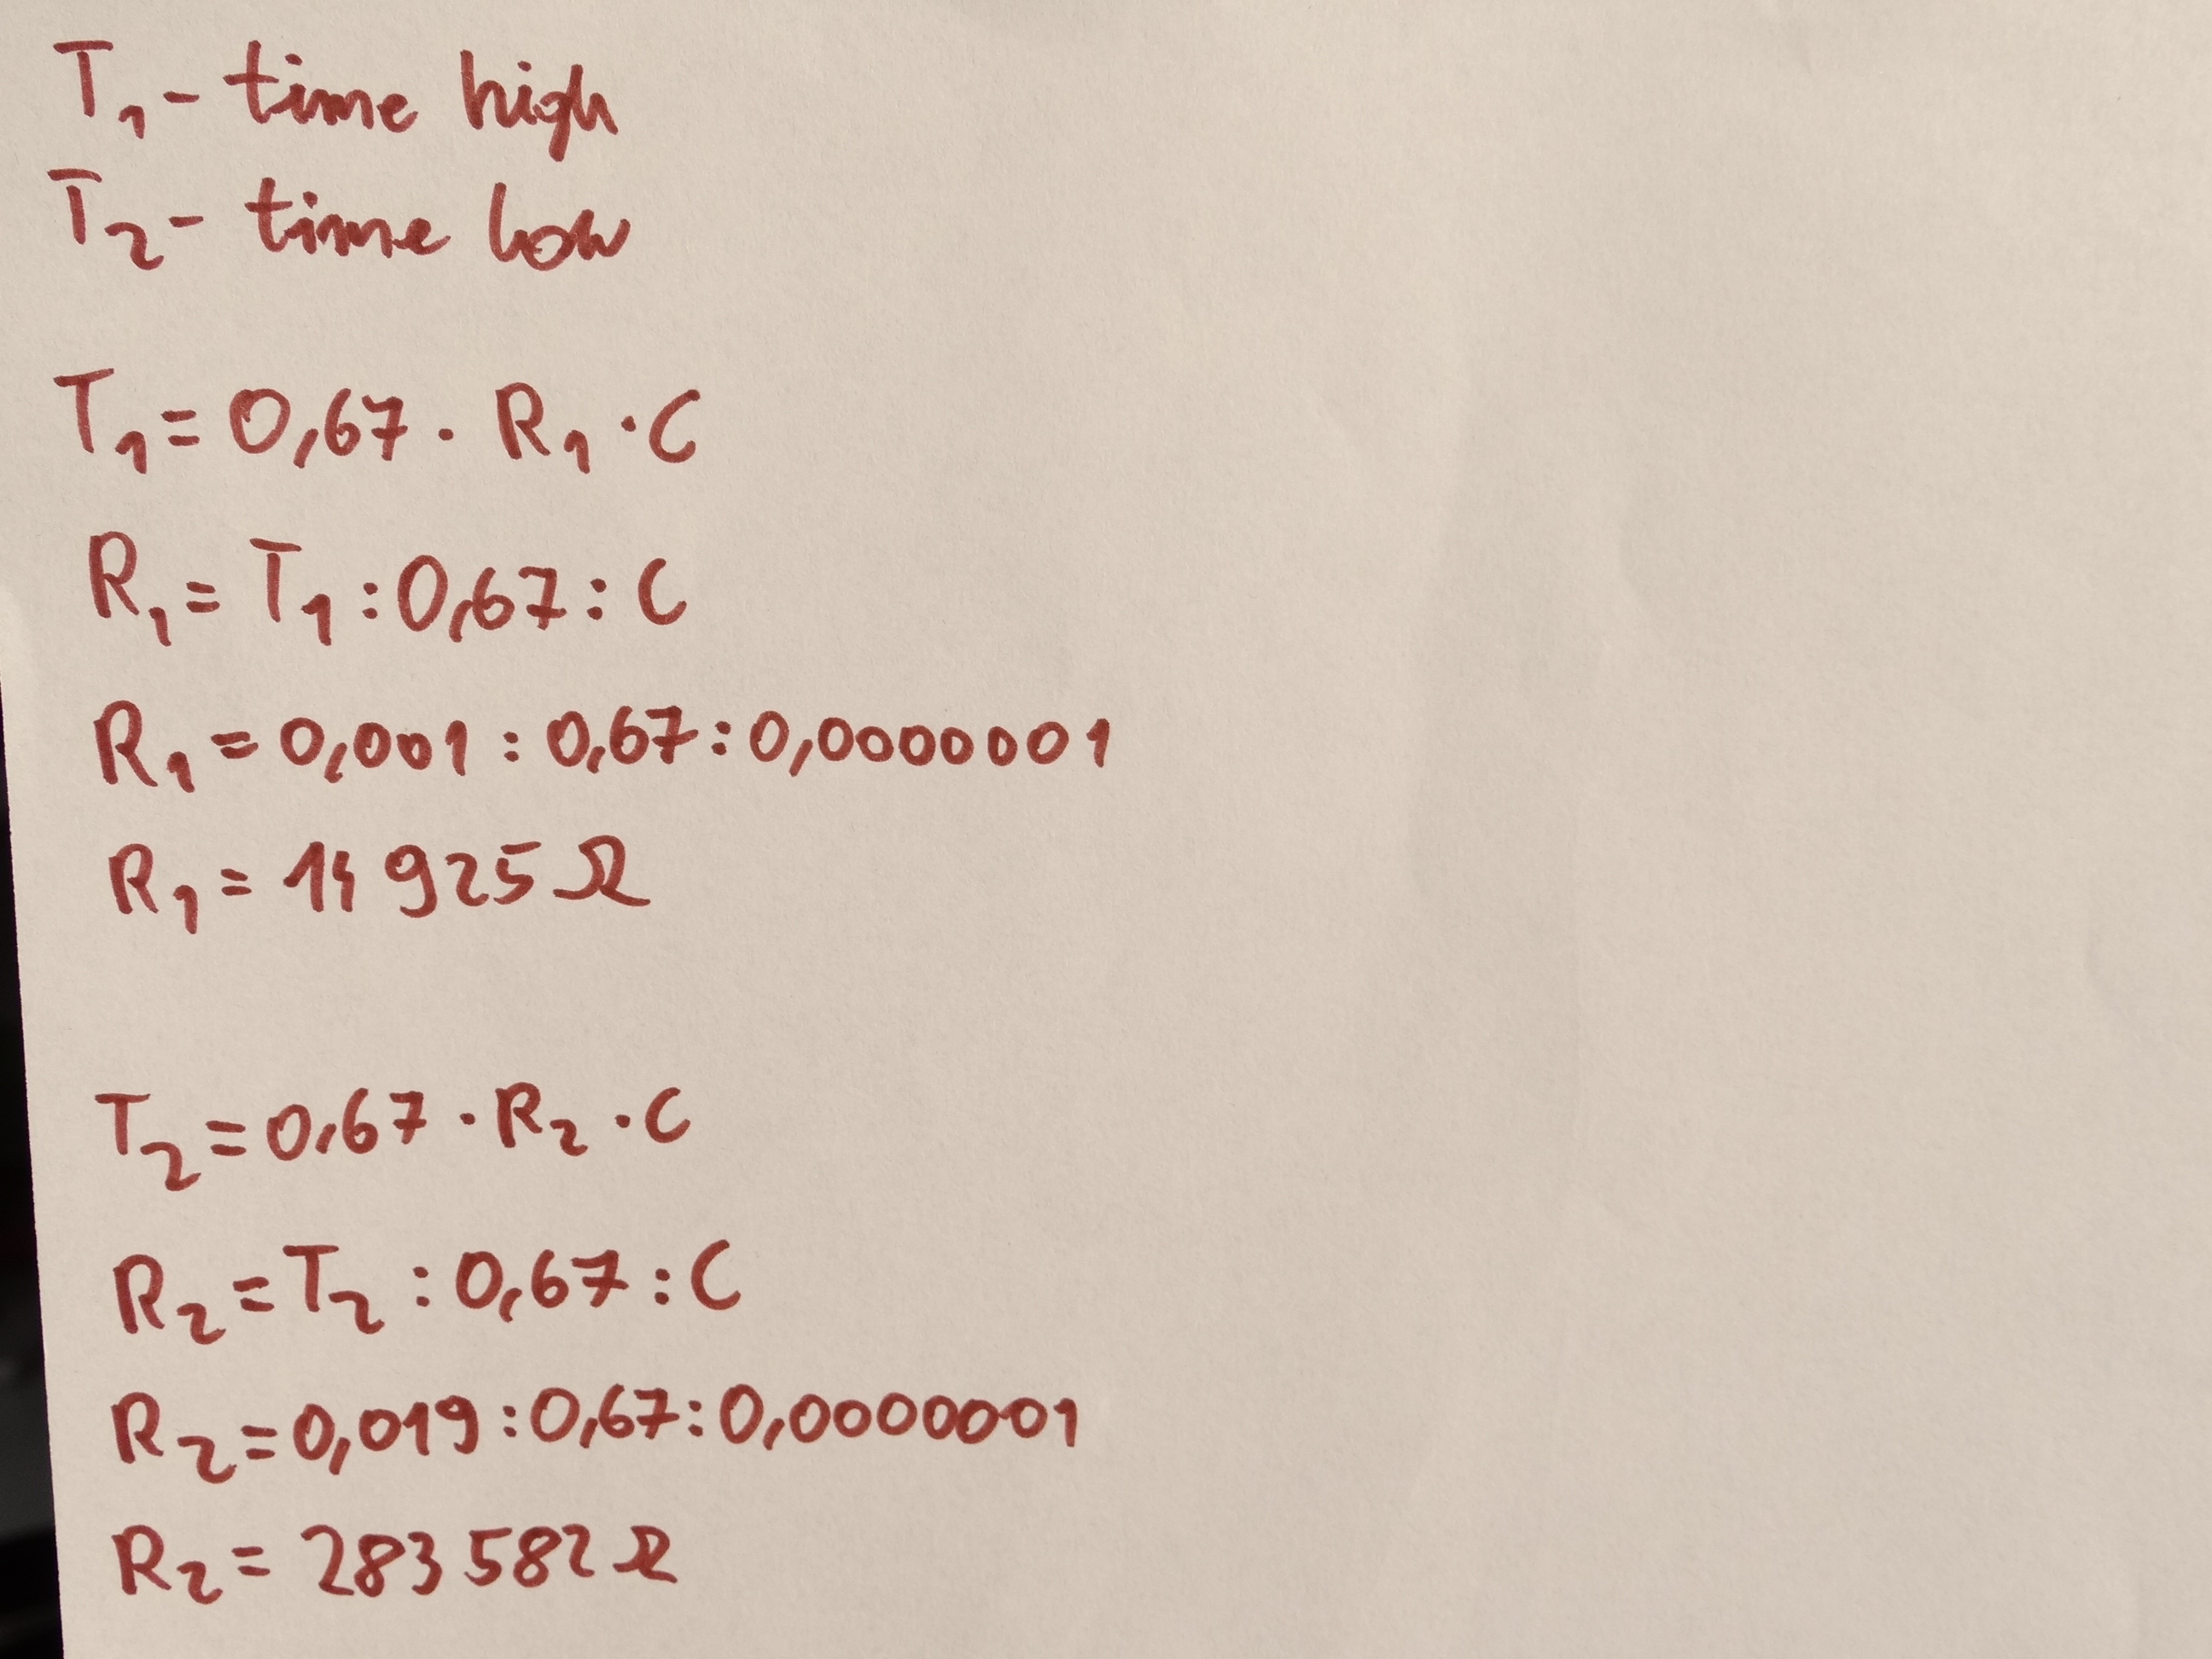 T₁ - time high
T₂ - time low
T₁ = 0,67 · R₁ · C
R₁ = T₁ : 0,67 : C
R₁ = 0,001 : 0,67 : 0,0000001
R₁ = 14 925 Ω
T₂ = 0,67 · R₂ · C
R₂ = T₂ : 0,67 : C
R₂ = 0,019 : 0,67 : 0,0000001
R₂ = 283 582 Ω